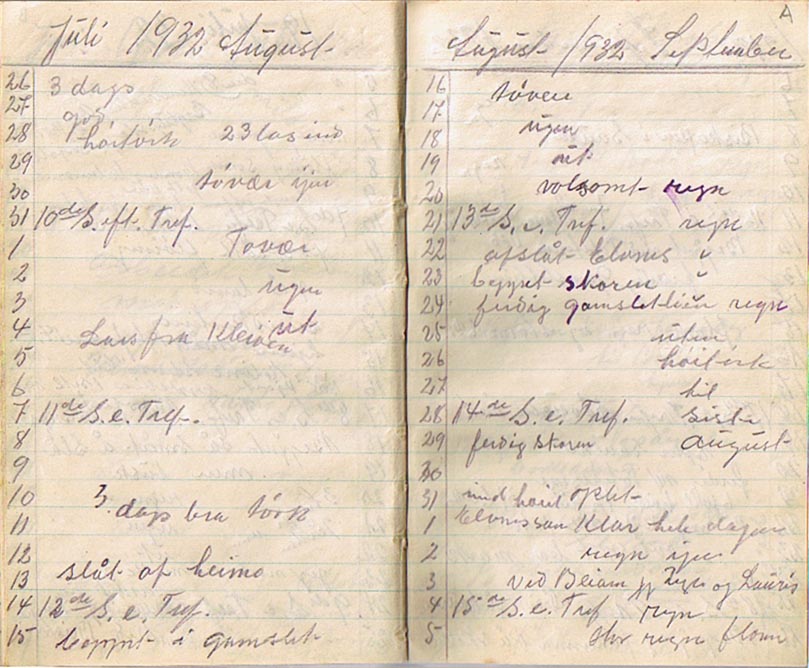 Juli 1932 August
26 3 dags
27 god
28 høitørk 23 las ind
29
30 tøvær ijen
31 10de S. eft. Tref.
1 Tovær
2 ugen
3 ut
4 Lars fra Kleiven
5
6
7 11de S. e. Tref.
8
9
10 3 dags bra tørk
11
12
13 slåt af heime
14 12de S. e. Tref.
15 beppt i gamslet
A
August 1932 September
16 tøven
17 ugen
18 ut
19
20 volsomt regn
21 13de S. e. Tref. regn
22 afslåt Elvnes i
23 beppt skoren
24 ferdig gamsletlien regn
25 uten
26 høitørk
27 til
28 14de S. e. Tref. siste
29 ferdig skoren august
30
31 ind høiet oplet
1 Klar hele dagen
2 regn ijen
3 ved Beiarn og Lauris
4 15de S. e. Tref regn
5 stor regn flom